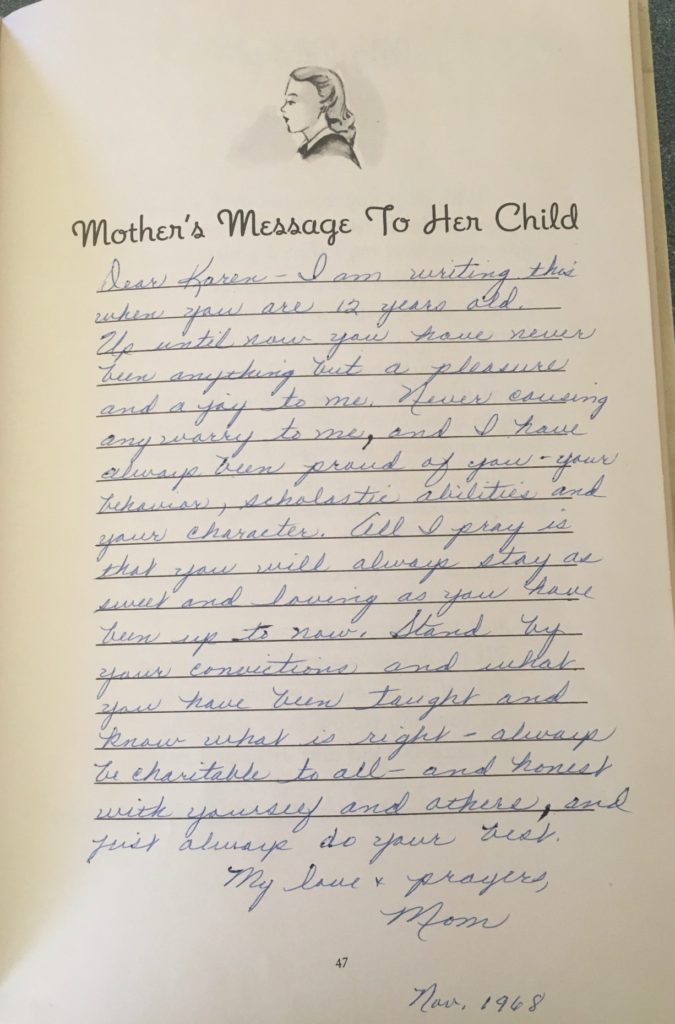 Mother's Message To Her Child
Dear Karen – I am writing this
when you are 12 years old.
Up until now you have never
been anything but a pleasure
and a joy to me. Never causing
any worry to me, and I have
always been proud of you – your
behavior, scholastic abilities and
your character. All I pray is
that you will always stay as
sweet and loving as you have
been up to now. Stand by
your convictions and what
you have been taught and
know what is right – always
be charitable to all – and honest
with yourself and others, and
just always do your best.
My love + prayers,
Mom
47
Nov. 1968